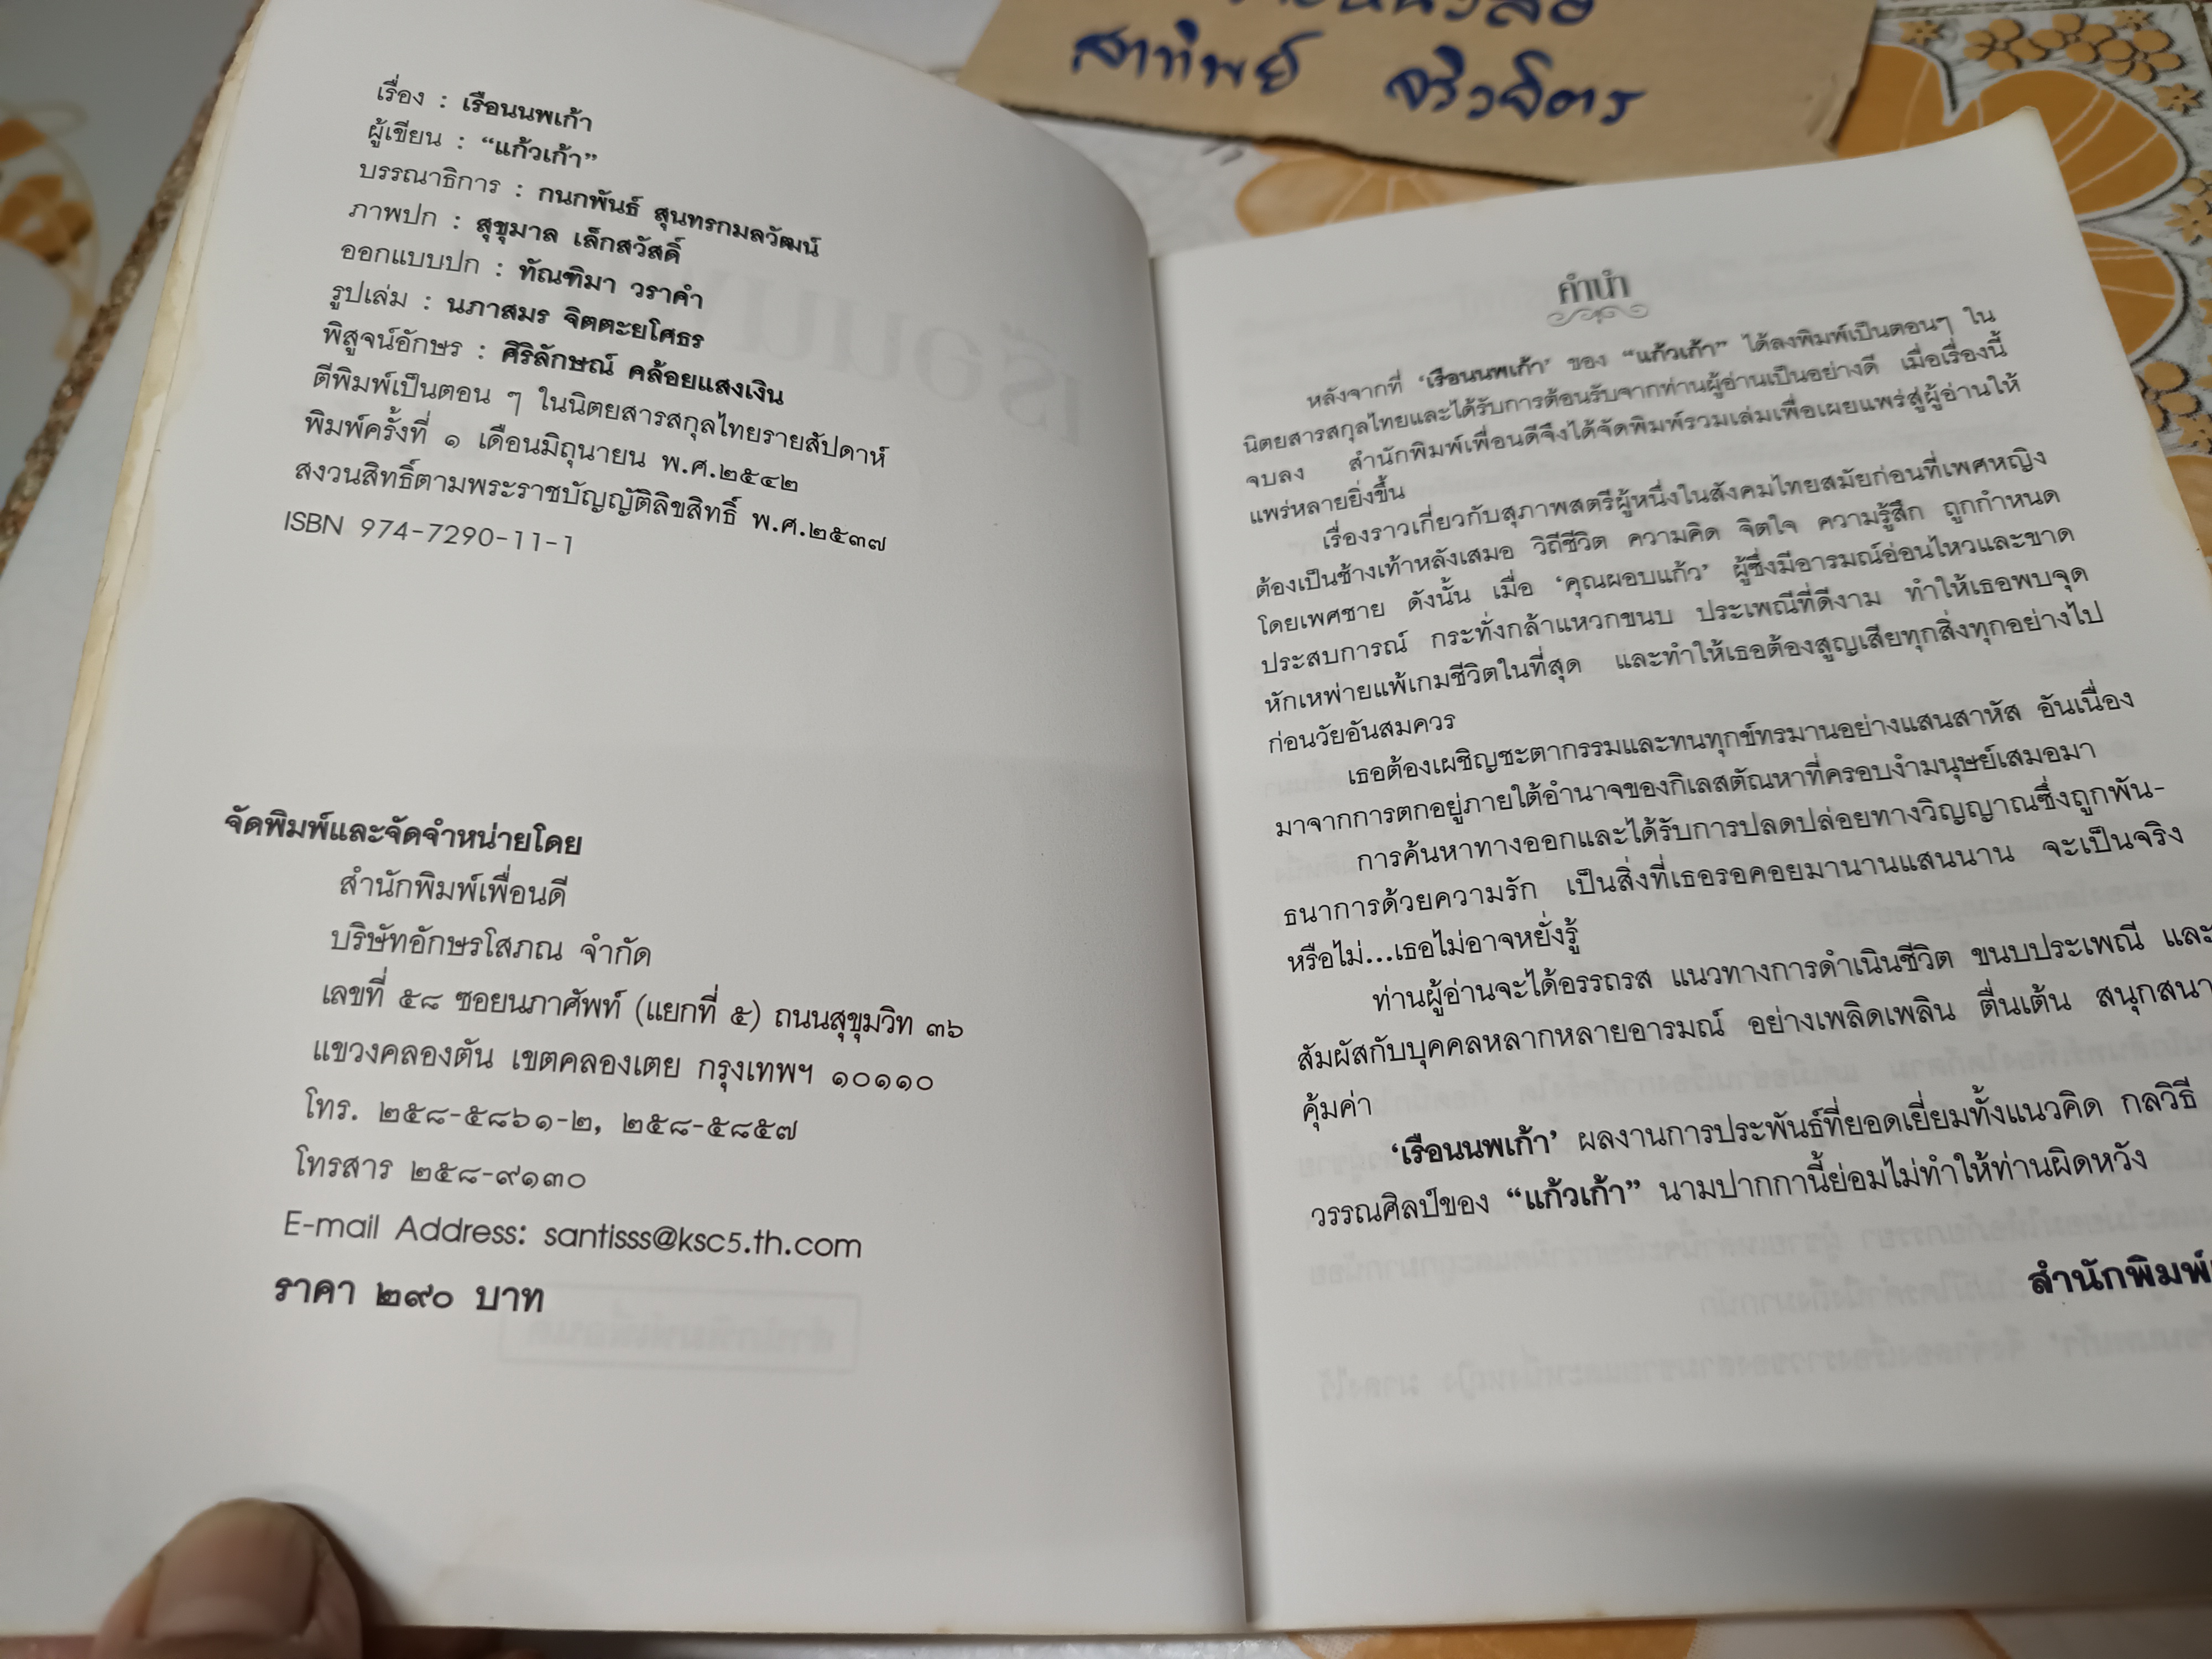 สาทิพย์ จริวจิตร
เรื่อง : เรือนนพเก้า
ผู้เขียน : “แก้วเก้า”
บรรณาธิการ : กนกพันธ์ สุนทรกมลวัฒน์
ภาพปก : สุขุมาล เล็กสวัสดิ์
ออกแบบปก : ทัณฑิมา วราคำ
รูปเล่ม : นภาสมร จิตตะยโศธร
พิสูจน์อักษร : ศิริลักษณ์ คล้อยแสงเงิน
ตีพิมพ์เป็นตอน ๆ ในนิตยสารสกุลไทยรายสัปดาห์
พิมพ์ครั้งที่ ๑ เดือนมิถุนายน พ.ศ.๒๕๔๒
สงวนสิทธิ์ตามพระราชบัญญัติลิขสิทธิ์ พ.ศ.๒๕๓๗
ISBN 974-7290-11-1
จัดพิมพ์และจัดจำหน่ายโดย
สำนักพิมพ์เพื่อนดี
บริษัทอักษรโสภณ จำกัด
เลขที่ ๕๘ ซอยนภาศัพท์ (แยกที่ ๕) ถนนสุขุมวิท ๓๖
แขวงคลองตัน เขตคลองเตย กรุงเทพฯ ๑๐๑๑๐
โทร. ๒๕๘-๕๘๖๑-๒, ๒๕๘-๕๘๕๗
โทรสาร ๒๕๘-๙๑๓๐
E-mail Address: santisss@ksc5.th.com
ราคา ๒๙๐ บาท
คำนำ
หลังจากที่ ‘เรือนนพเก้า’ ของ “แก้วเก้า” ได้ลงพิมพ์เป็นตอนๆ ใน
นิตยสารสกุลไทยและได้รับการต้อนรับจากท่านผู้อ่านเป็นอย่างดี เมื่อเรื่องนี้
จบลง สำนักพิมพ์เพื่อนดีจึงได้จัดพิมพ์รวมเล่มเพื่อเผยแพร่สู่ผู้อ่านให้
แพร่หลายยิ่งขึ้น
เรื่องราวเกี่ยวกับสุภาพสตรีผู้หนึ่งในสังคมไทยสมัยก่อนที่เพศหญิง
ต้องเป็นช้างเท้าหลังเสมอ วิถีชีวิต ความคิด จิตใจ ความรู้สึก ถูกกำหนด
โดยเพศชาย ดังนั้น เมื่อ ‘คุณผอบแก้ว’ ผู้ซึ่งมีอารมณ์อ่อนไหวและขาด
ประสบการณ์ กระทั่งกล้าแหวกขนบ ประเพณีที่ดีงาม ทำให้เธอพบจุด
หักเหพ่ายแพ้เกมชีวิตในที่สุด และทำให้เธอต้องสูญเสียทุกสิ่งทุกอย่างไป
ก่อนวัยอันสมควร
เธอต้องเผชิญชะตากรรมและทนทุกข์ทรมานอย่างแสนสาหัส อันเนื่อง
มาจากการตกอยู่ภายใต้อำนาจของกิเลสตัณหาที่ครอบงำมนุษย์เสมอมา
การค้นหาทางออกและได้รับการปลดปล่อยทางวิญญาณซึ่งถูกพัน-
ธนาการด้วยความรัก เป็นสิ่งที่เธอรอคอยมานานแสนนาน จะเป็นจริง
หรือไม่...เธอไม่อาจหยั่งรู้
ท่านผู้อ่านจะได้อรรถรส แนวทางการดำเนินชีวิต ขนบประเพณี และ
สัมผัสกับบุคคลหลากหลายอารมณ์ อย่างเพลิดเพลิน ตื่นเต้น สนุกสนา
คุ้มค่า
‘เรือนนพเก้า’ ผลงานการประพันธ์ที่ยอดเยี่ยมทั้งแนวคิด กลวิธี
วรรณศิลป์ของ “แก้วเก้า” นามปากกานี้ย่อมไม่ทำให้ท่านผิดหวัง
สำนักพิมพ์